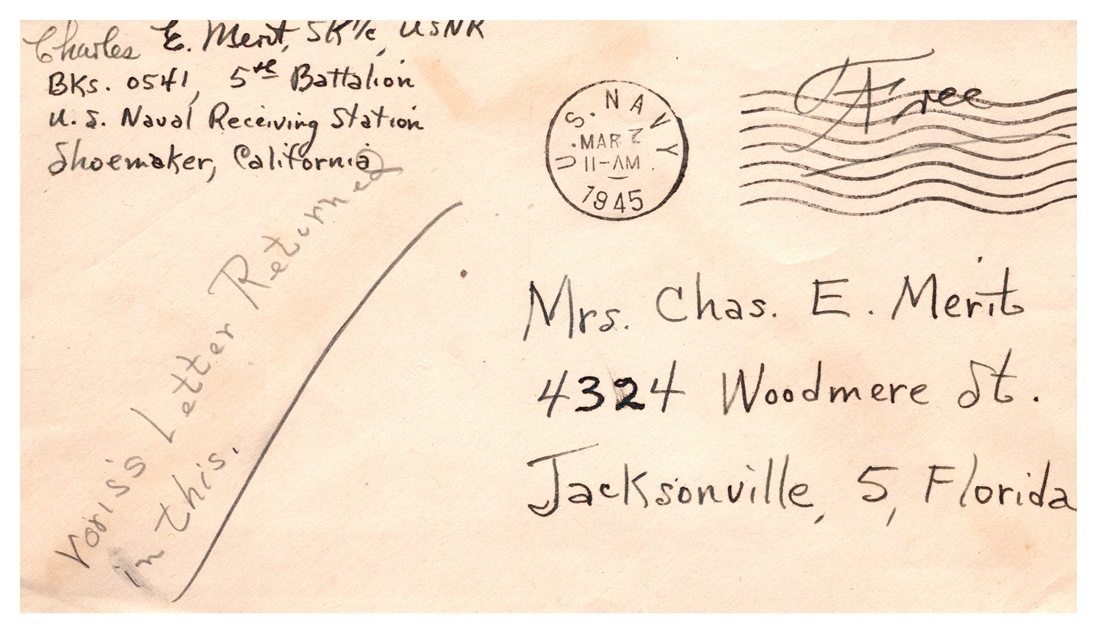 Charles E. Merit, SK1/c, USNR
BKs. 0541, 5th Battalion
U. S. Naval Receiving Station
Shoemaker, California
U. S. NAVY
MAR 2
11-AM
1945
Free
Voris's Letter Returned
in this.
Mrs. Chas. E. Merit
4324 Woodmere St.
Jacksonville, 5, Florida